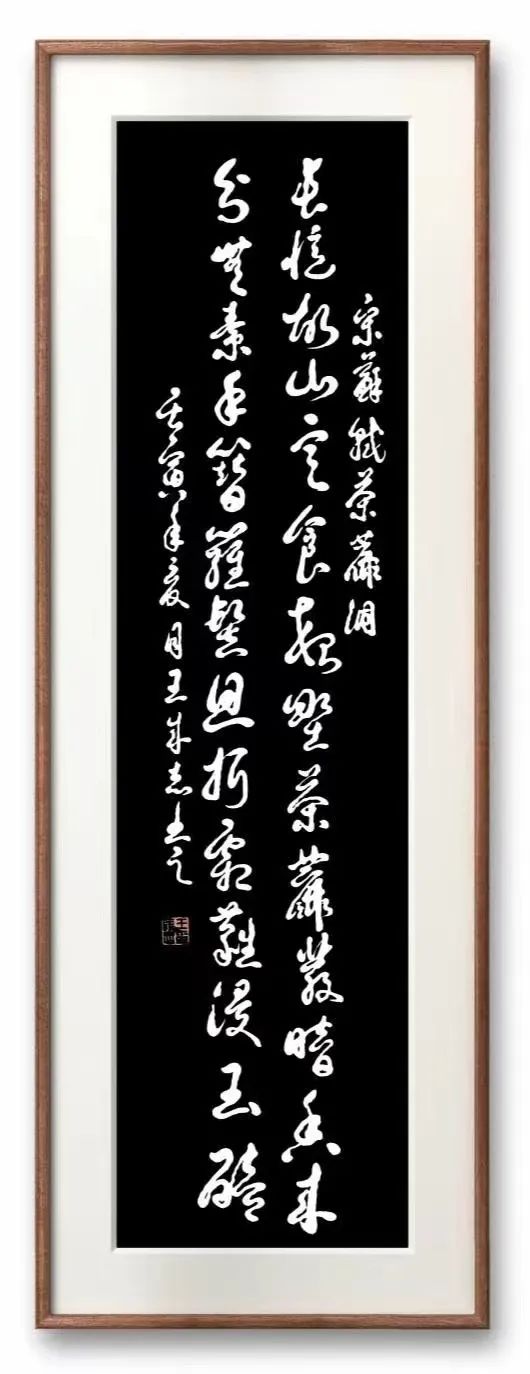 宋蘇軾荼蘼洞
長憶故山寒食夜野荼蘼發暗香來
分無素手簪羅髻且折霜蕤浸玉醅
壬寅年夏月王成志书